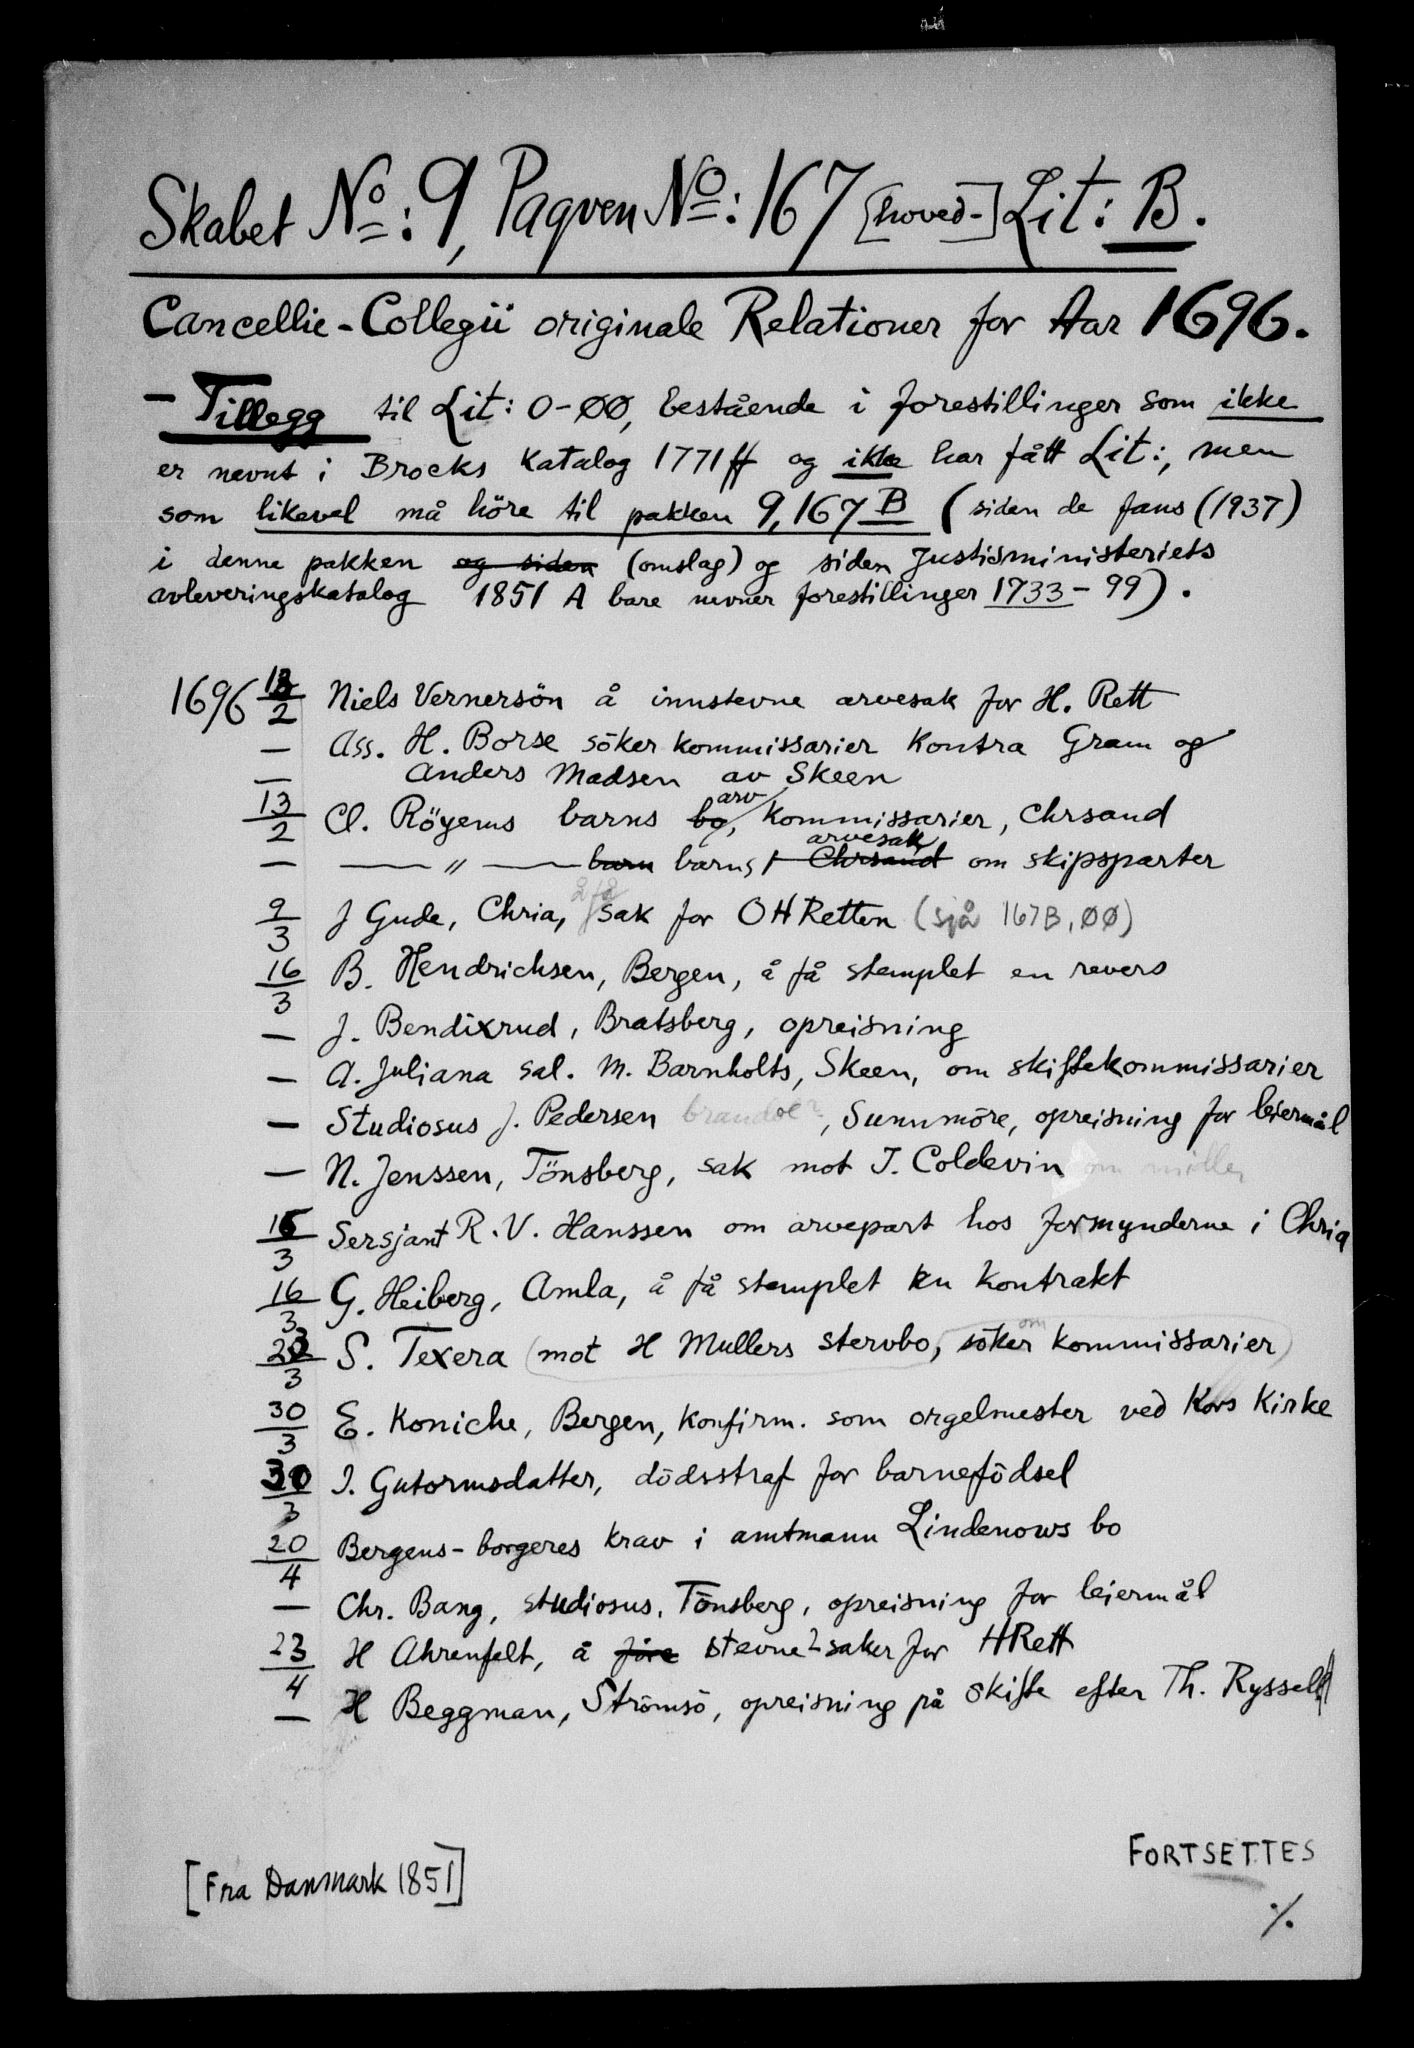 Skabet No: 9, Paqven No: 167 [hoved-] Lit: B.
Cancellie-Collegii originale Relationer for Aar 1696.
- Tillegg til Lit: O-ØØ, bestående i forestillinger som ikke
er nevnt i Brocks Katalog 1771 ff og ikke har fått Lit:, men
som likevel må höre til pakken 9,167 B (siden de fans (1937)
i denne pakken og siden (omslag) og siden Justisministeriets
avleveringskatalog 1851 A bare nevner forestillinger 1733-99).
1696 13/2 Niels Vernersön å innstevne arvesak for H. Rett
— Ass. H. Borse söker kommissarier kontra Gram og
— Anders Madsen av Skeen
13/2 Cl. Röyems barns bo, arv, kommissarier, Chrsand
— — " — barn barns arvesak Chrsand om skipsparter
9/3 J Gude, Chria, å få sak for OHRetten (sjå 167B, ØØ)
16/3 B. Hendrichsen, Bergen, å få stemplet en revers
— J. Bendixrud, Bratsberg, opreisning
— A. Juliana sal. M. Barnholts, Skeen, om skiftekommissarier
— Studiosus J. Pedersen, Sunnmöre, opreisning for leiermål
— N. Jenssen, Tönsberg, sak mot J. Coldevin
/3 Sersjant R. V. Hanssen om arvepart hos formynderne i Chria
16/3 G. Heiberg, Amla, å få stemplet en kontrakt
/3 S. Texera (mot H Mullers stervbo, söker om kommissarier)
30/3 E. Koniche, Bergen, konfirm. som orgelmester ved Kors Kirke
30/3 I. Gutormsdatter, dödsstraf for barnefödsel
20/4 Bergens-borgeres krav i amtmann Lindenows bo
— Chr. Bang, studiosus, Tönsberg, opreisning for leiermål
23/4 H Ahrenfelt, å före stevne 2 saker for HRett
— H Beggman, Strömsö, opreisning på skifte efter Th. Ryssel
FORTSETTES
[Fra Danmark 1851]
./.